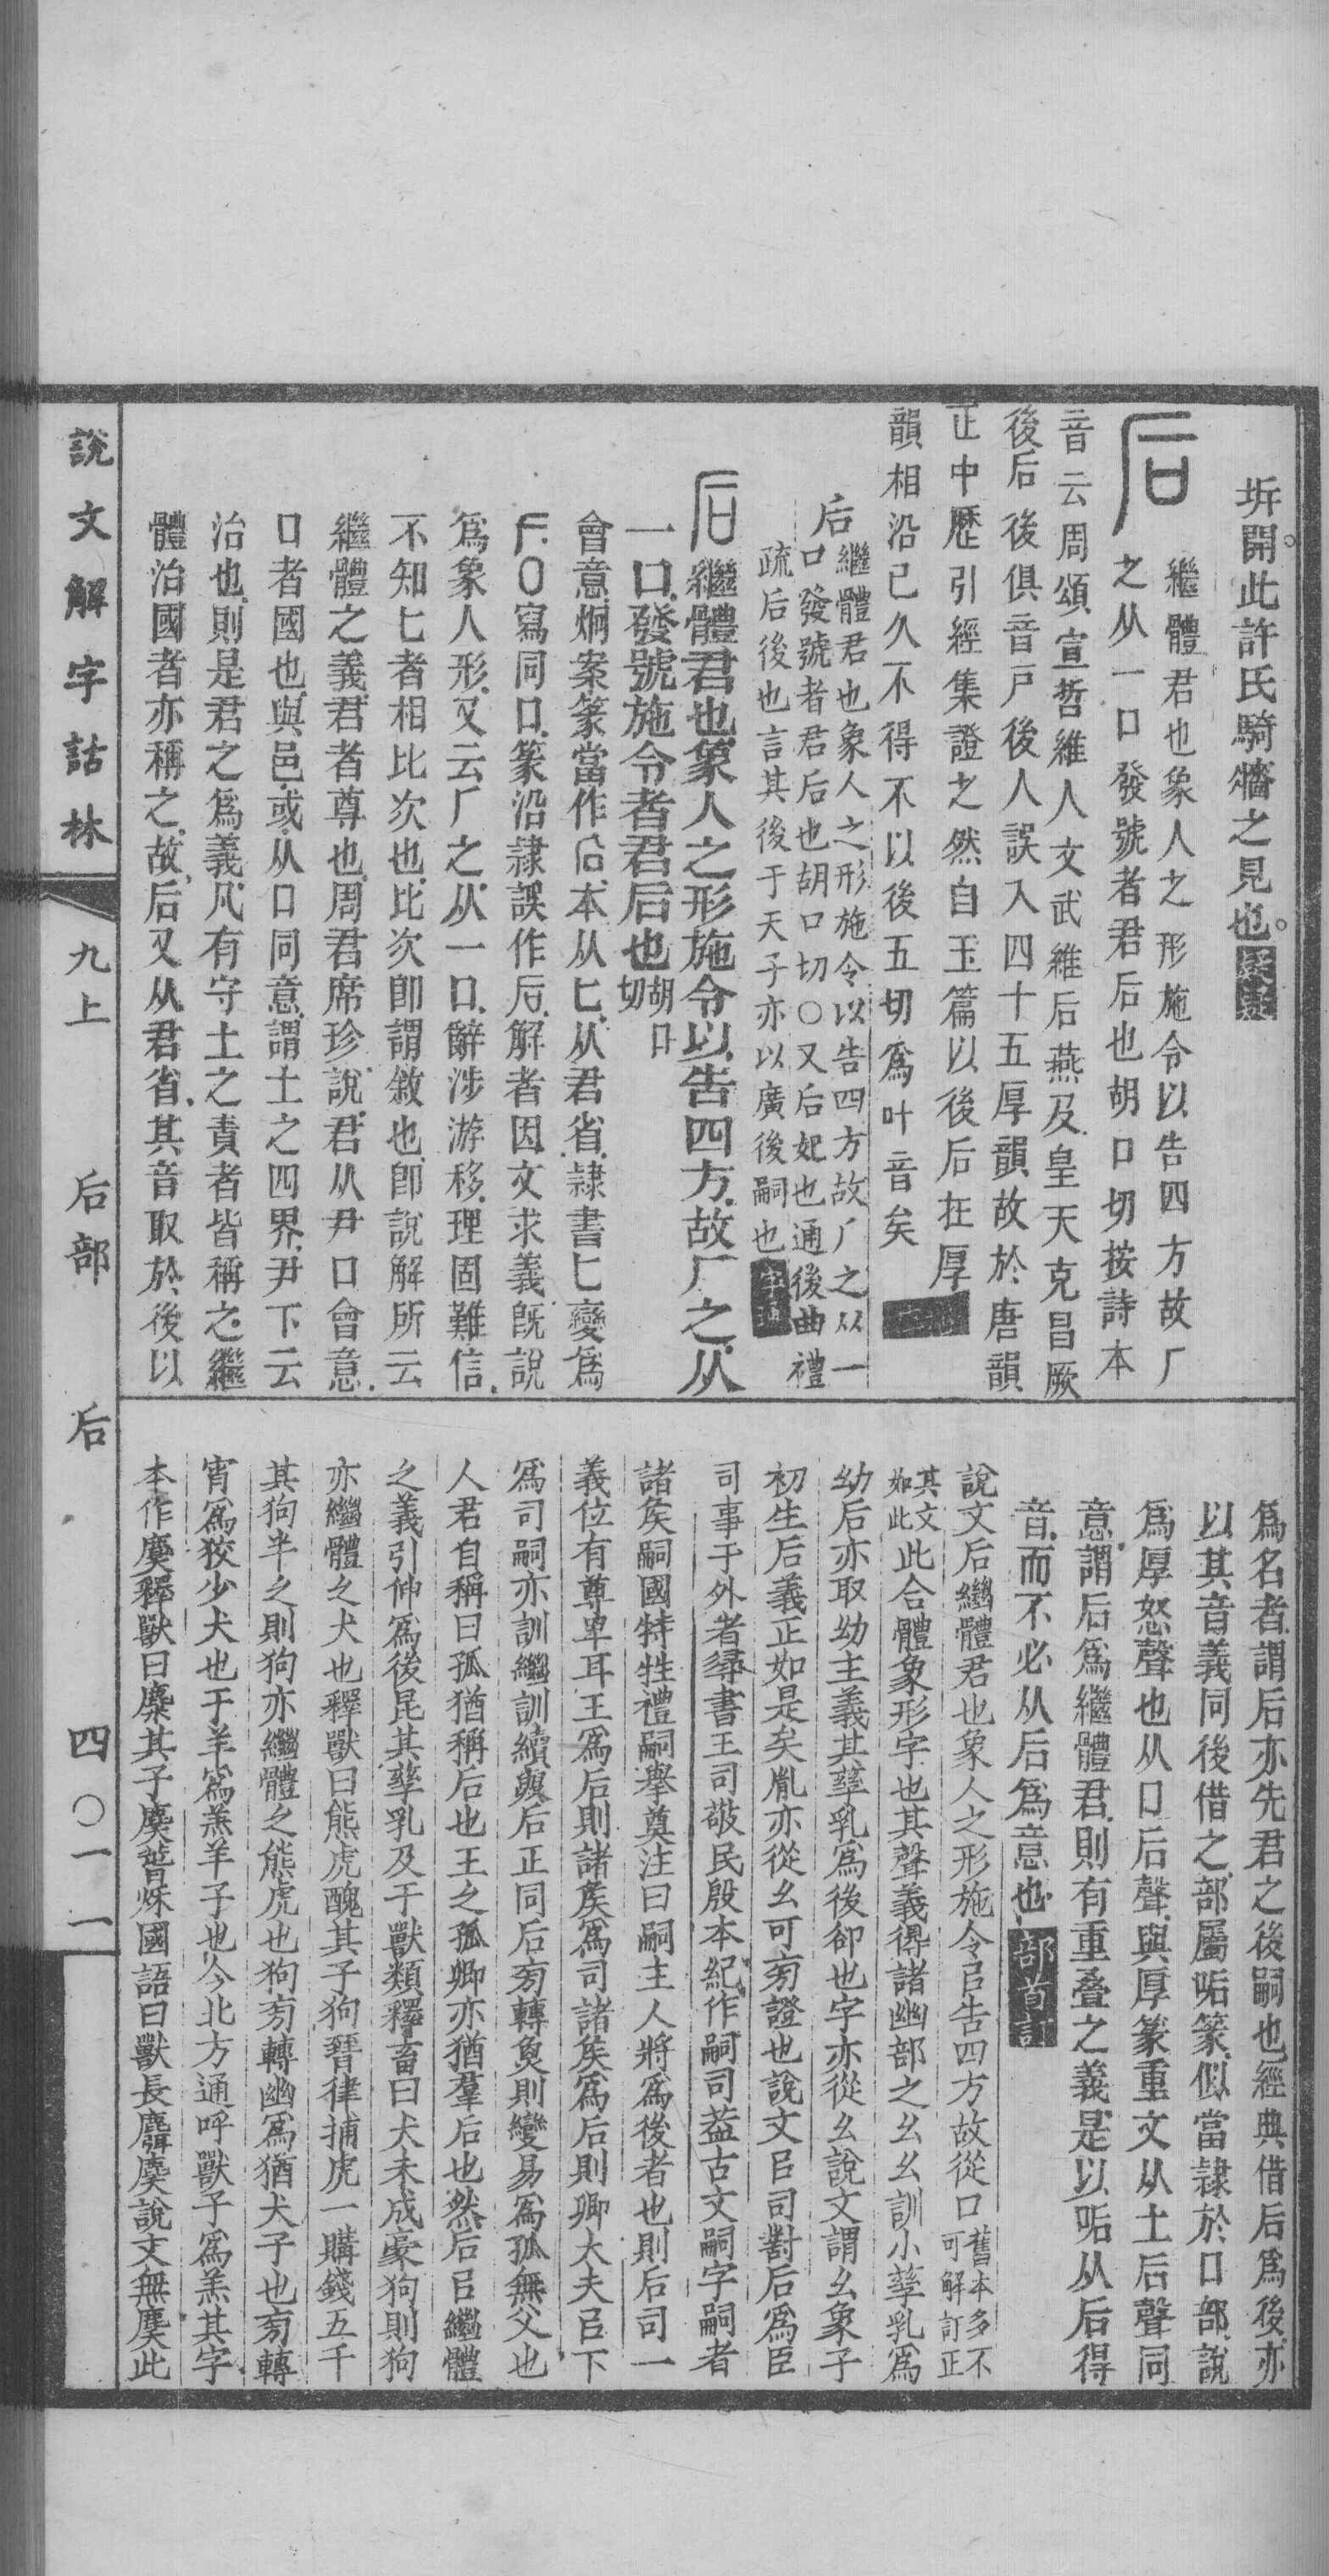 坼開此許氏騎牆之見也
后
繼體君也象人之形施令以告四方故厂
之从一口發號者君后也胡口切按詩本
音云周頌宣哲維人文武維后燕及皇天克昌厥
後后後俱音戸後人誤入四十五厚韻故於唐韻
正中歷引經集證之然自玉篇以後后在厚
韻相沿已久不得不以後五切爲叶音矣
后
繼體君也象人之形施令以告四方故厂之从一
口發號者君后也胡口切○又后妃也通後曲禮
疏后後也言其後于天子亦以廣後嗣也
后繼體君也象人之形施令以告四方故厂之从
一口發號施令者君后也胡口切
會意炯案篆當作𠂋本从匕从君省隷書匕變爲
寫同口篆沿隷誤作后解者因文求義旣說
爲象人形又云厂之从一口辭涉游移理固難信
不知匕者相比次也比次卽謂敘也卽說解所云
繼體之義君者尊也周君席珍說君从尹口會意
口者國也與邑或从口同意謂土之四界尹下云
治也則是君之爲義凡有守土之責者皆稱之繼
體治國者亦稱之故后又从君省其音取於後以
爲名者謂后亦先君之後嗣也經典借后爲後亦
以其音義同後借之部屬垢篆似當隷於口部說
爲厚怒聲也从口后聲與厚篆重文从土后聲同
意謂后爲繼體君則有重疊之義是以垢从后得
音而不必从后爲意也部首訂
說文后繼體君也象人之形施令㠯告四方故從口舊本多不可解訂正
其文如此此合體象形字也其聲義得諸幽部之幺幺訓小孳乳爲
幼后亦取幼主義其孳乳爲後卻也字亦從幺說文謂幺象子
初生后義正如是矣胤亦從幺可旁證也說文㠯司對后爲臣
司事于外者尋書王司敬民殷本紀作嗣司葢古文嗣字嗣者
諸矦嗣國特牲禮嗣舉奠注曰嗣主人將爲後者也則后司一
義位有尊卑耳王爲后則諸矦爲司諸矦爲后則卿大夫㠯下
爲司嗣亦訓繼訓續與后正同后旁轉魚則變易爲孤無父也
人君自稱曰孤猶稱后也王之孤卿亦猶羣后也然后㠯繼體
之義引伸爲後昆其孳乳及于獸類釋畜曰犬未成豪狗則狗
亦繼體之犬也釋獸曰熊虎醜其子狗晉律捕虎一購錢五千
其狗半之則狗亦繼體之熊虎也狗旁轉幽爲猶犬子也旁轉
宵爲狡少犬也于羊爲羔羊子也今北方通呼獸子爲羔其字
本作麌釋獸曰麋其子麌魯語曰獸長麑麌說文無麌此
說文解字詁林　九上　后部　后　四○一一